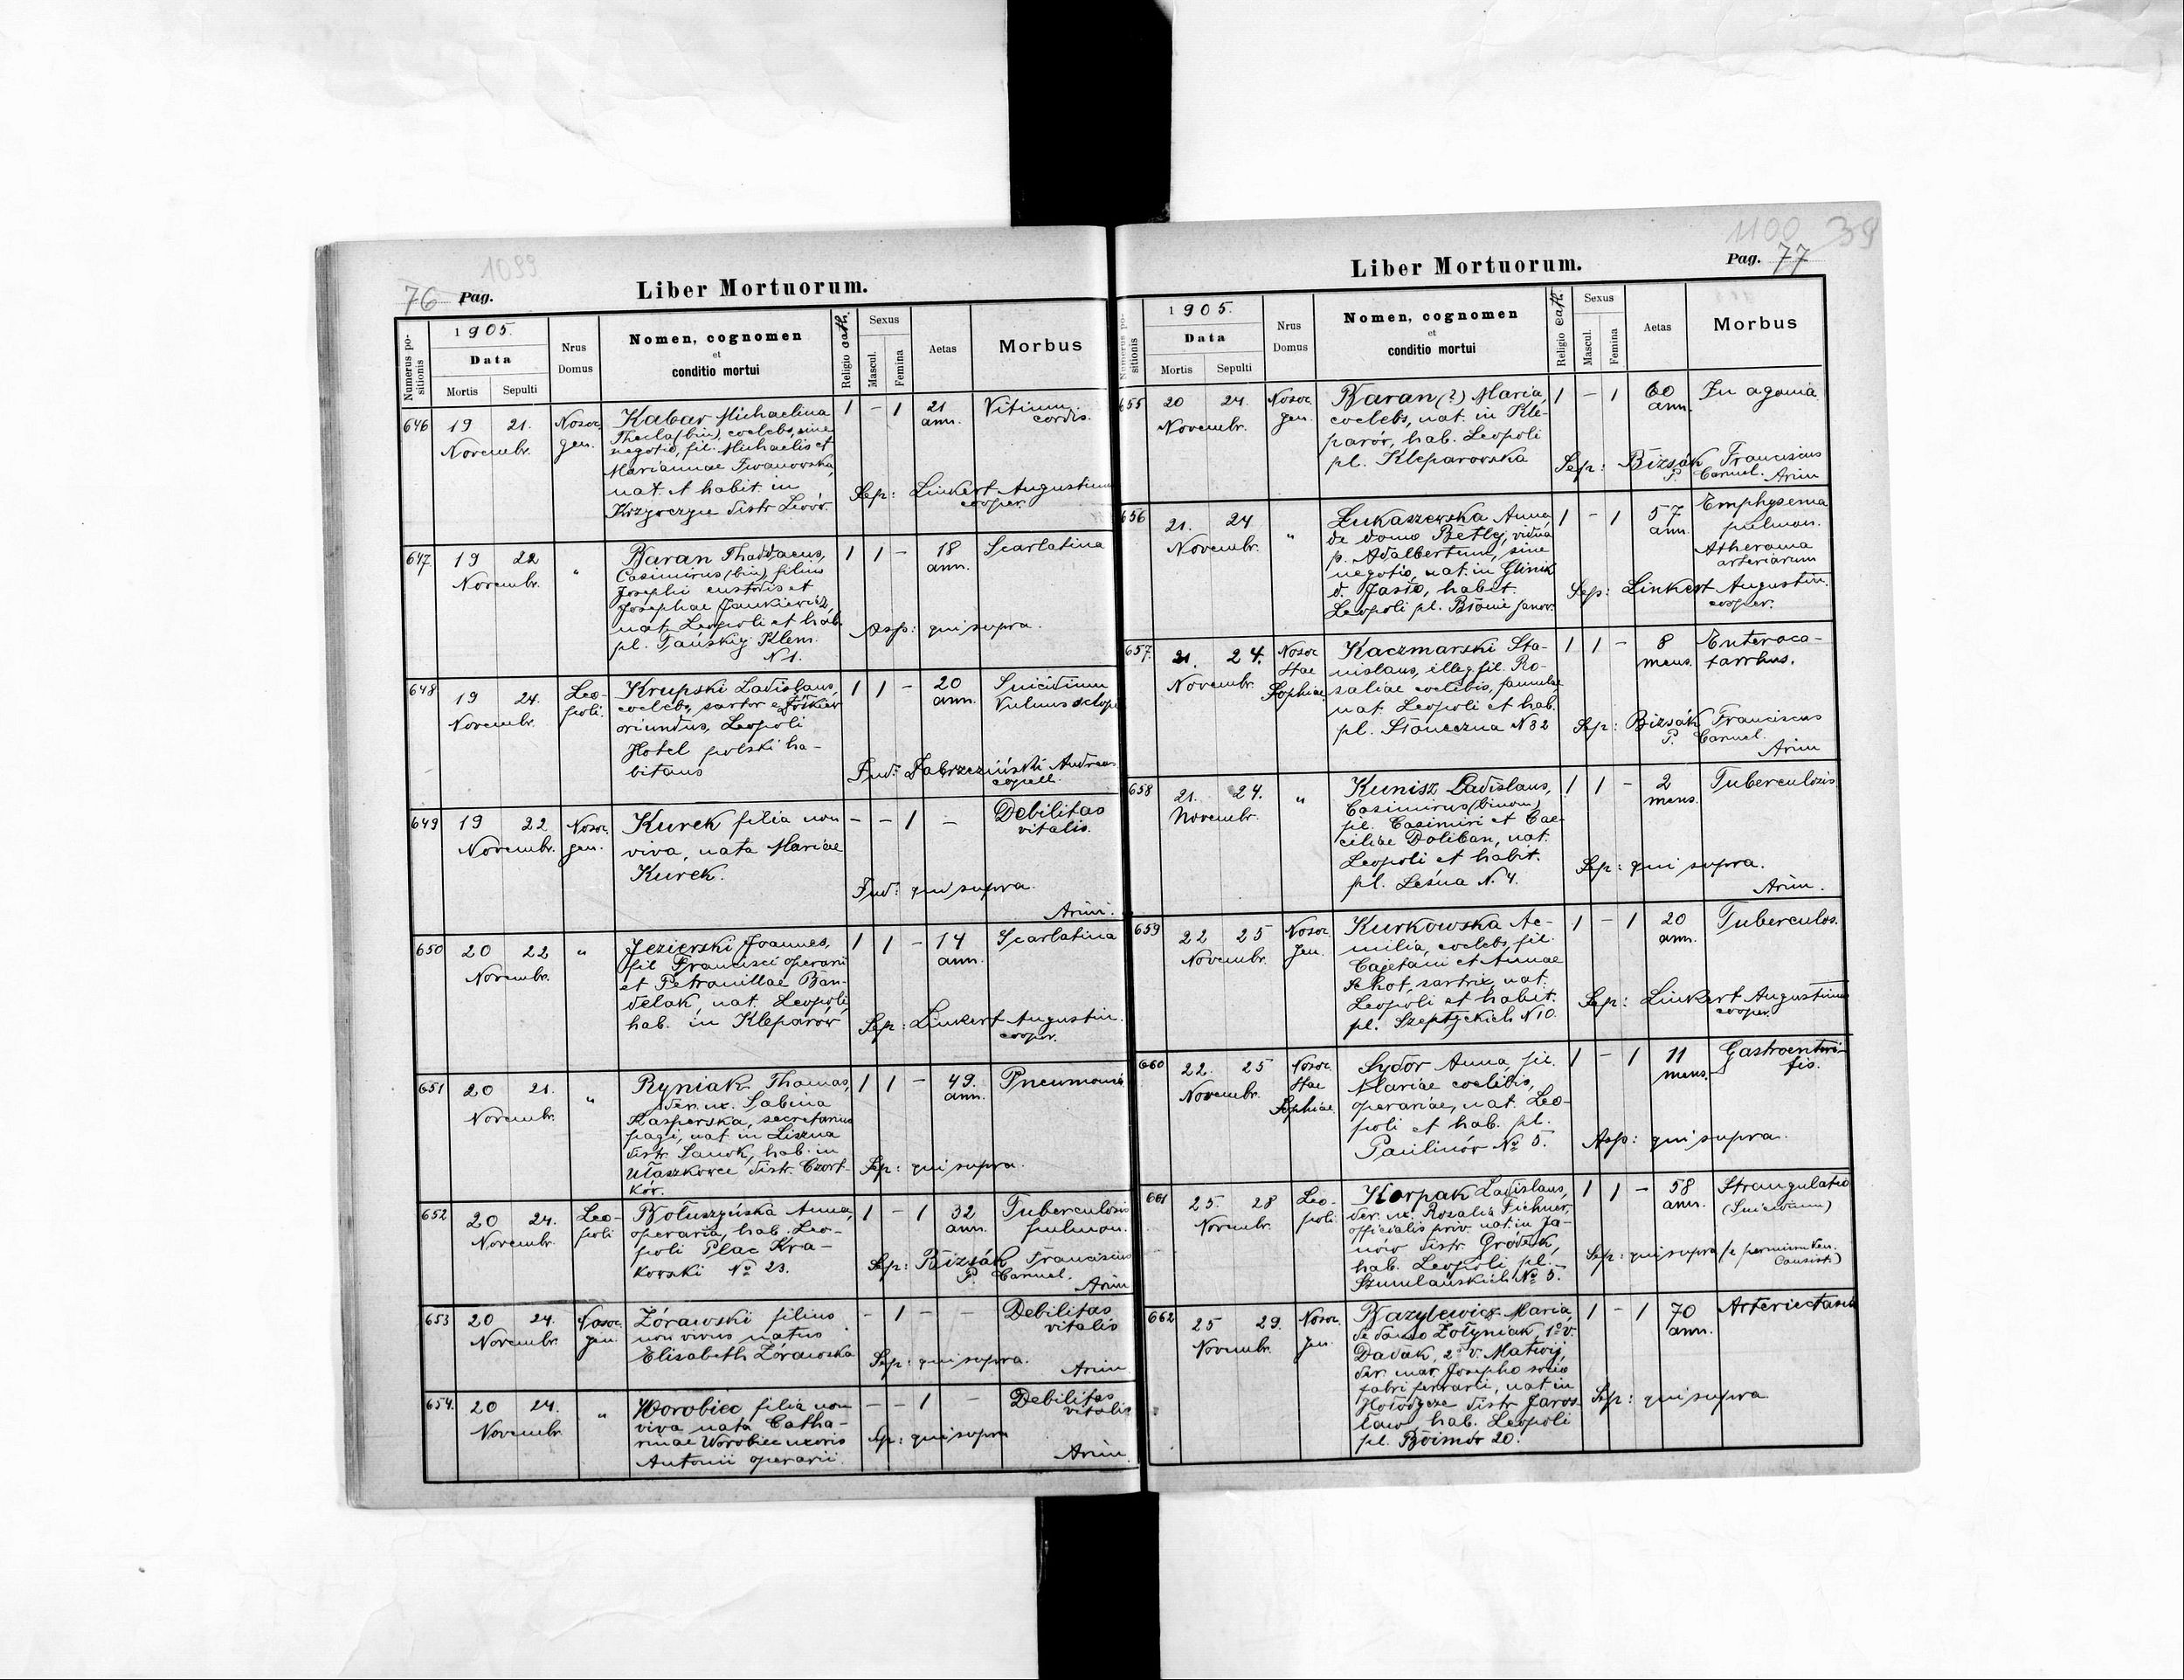 1099
76 Pag.
Liber Mortuorum.
Numerus positionis
1905.
Data
Mortis
Sepulti
Nrus Domus
Nomen, cognomen
et
conditio mortui
Religio cath.
Sexus
Mascul.
Femina
Aetas
Morbus
646 19 21. Novembr. Nosoc. gen.
Kabar Michaelina
Thecla (bin), coelebs, sine
negotio, fil. Michaelis et
Mariannae Iwanowska,
nat. et habit. in
Krzywczyce distr. Lwów.
1 – 1 21 ann. Vitium cordis.
Sep: Linkert Augustinus
cooper.
647 19 22 Novembr. "
Baran Thaddaeus,
Casimirus (bin), filius
Josephi custodis et
Josephae Jankiewicz,
nat. Leopoli et hab.
pl. Tańskiej Klem.
N 1.
1 1 – 18 ann. Scarlatina
Asp: qui supra.
648 19 24. Novembr. Leopoli.
Krupski Ladislaus,
coelebs, sartor e Żółkiew
oriundus, Leopoli
Hotel polski ha-
bitans
1 1 – 20 ann. Suicidium
Vulnus sclop
Ind: Dabrzeziński Andreas
capell.
649 19 22 Novembr. Nosoc. gen.
Kurek filia non
viva, nata Mariae
Kurek.
– – 1 – Debilitas
vitalis.
Ind: qui supra.
Arim.
650 20 22 Novembr. "
Jezierski Joannes,
fil Francisci operarii
et Petronillae Ban-
delak, nat. Leopoli,
hab. in Kleparów
1 1 – 14 ann. Scarlatina
Sep: Linkert Augustin.
cooper.
651 20 21. Novembr. "
Ryniak Thomas,
der. ux. Sabina
Kasperska, secretarius
pagi, nat in Liszna
distr. Sanok, hab. in
Ułaszkowce, distr. Czort-
ków.
1 1 – 49. ann. Pneumonia
Sep: qui supra.
652 20 24. Novembr. Leopoli
Bołuszyńska Anna,
operaria, hab. Leo-
poli Plac Kra-
kowski No 23.
1 – 1 32 ann. Tuberculosis
pulmon.
Sep: Bizsák Franciscus
P. Carmel.
Arim
653 20 24. Novembr. Nosoc. gen.
Żórawski filius
non vivus natus
Elisabeth Żórawska
– 1 – – Debilitas
vitalis
Sep: qui supra.
Arim
654. 20 24. Novembr. "
Worobiec filia non
viva nata Catha-
rinae Worobiec uxoris
Antonii operarii.
– – 1 – Debilitas
vitalis
Sep: qui supra
Arim.
1100 39
Pag. 77
Liber Mortuorum.
Numerus positionis
1905.
Data
Mortis
Sepulti
Nrus Domus
Nomen, cognomen
et
conditio mortui
Religio cath.
Sexus
Mascul.
Femina
Aetas
Morbus
655 20 24. Novembr. Nosoc. gen.
Baran (?) Maria,
coelebs, nat. in Kle-
parów, hab. Leopoli
pl. Kleparowska
1 – 1 60 ann. In agonia
Sep: Bizsák Franciscus
P. Carmel. Arim
656 21. 24 Novembr. "
Łukaszewska Anna
de domo Betlej, vidua
p. Adalbertum, sine
negotio, nat. in Glinik
d. Jasło, habit.
Leopoli pl. Błonie Janow.
1 – 1 57 ann. Emphysema
pulmon.
Atheroma
arteriarum
Sep: Linkert Augustin.
cooper.
657. 21. 24. Novembr. Nosoc Stae Sophiae
Kaczmarski Sta-
nislaus, illeg. fil. Ro-
saliae coelibis, famulae
nat. Leopoli et hab.
pl. Słoneczna N 32
1 1 – 8 mens. Enteroca-
tarrhus.
Sep: Bizsák Franciscus
P. Carmel.
Arim
658 21. 24. Novembr. "
Kunisz Ladislaus,
Casimirus (binom)
fil. Casimiri et Cae-
ciliae Doliban, nat.
Leopoli et habit.
pl. Leśna N. 4.
1 1 – 2 mens. Tuberculosis
Sep: qui supra.
Arim.
659 22 25 Novembr. Nosoc gen.
Kurkowska Ae-
milia, coelebs, fil.
Cajetani et Annae
Schot, sartrix, nat.
Leopoli et habit.
pl. Szeptyckich N 10.
1 – 1 20 ann. Tuberculos.
Sep: Linkert Augustinus
cooper.
660 22. 25 Novembr. Nosoc. Stae Sophiae
Sydor Anna, fil.
Mariae coelibis,
operariae, nat. Leo-
poli et hab. pl.
Paulinów No 5.
1 – 1 11 mens. Gastroenteri-
tis.
Asp: qui supra.
661 25. 28 Novembr. Leopoli
Karpak Ladislaus,
der. ux. Rosalia Fichner,
officialis priv. nat. in Ja-
now distr. Gródek,
hab. Leopoli pl.
Szumlańskich No 5.
1 1 – 58 ann. Strangulatio
(Suicidium)
Sep: qui supra (e permissu Ven.
Consist.)
662 25 29. Novembr. Nosoc. gen.
Bazylewicz Maria,
de domo Zołyniak, 1o v.
Dadak, 2o v. Matwij,
der. mar. Josepho socio
fabri ferrarii, nat in
Hołodycze distr Jaros-
ław, hab. Leopoli
pl. Boimów 20.
1 – 1 70 ann. Arteriectasis
Sep: qui supra